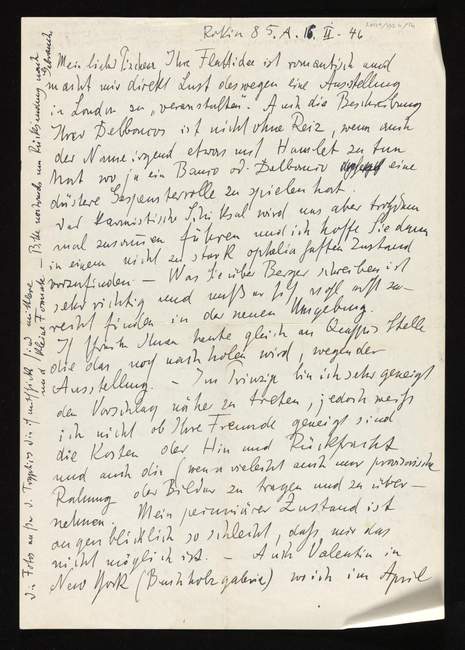 Rokin 85. A. 16. II. - 46
Mein lieber Fischer Ihre Flashidee ist romantisch und
macht mir direkt Lust deswegen eine Ausstellung
in London zu „veranstalten". Auch die Beschreibung
Ihres Delbancos ist nicht ohne Reiz, wenn auch
der Name irgend etwas mit Hamlet zu tun
hat wo ja ein Banco od. Delbanco eine
düstere Gespensterrolle zu spielen hat.
Das karmistische Schicksal wird uns aber trotzdem
mal zusammen führen und ich hoffe Sie dann
in einem nicht zu stark opheliahaften Zustand
vorzufinden — Was Sie über Berger schreiben ist
sehr richtig und muß er sich wohl erst zu-
recht finden in der neuen Umgebung.
Ich schreibe Ihnen heute gleich an Quappis Stelle
die das noch nachholen wird, wegen der
Ausstellung. — Im Prinzip bin ich sehr geneigt
dem Vorschlag näher zu treten, jedoch weiß
ich nicht ob Ihre Freunde geneigt sind
die Kosten der Hin und Rückfracht
und auch die (wenn vieleicht auch nur provisorische
Rahmung der Bilder zu tragen und zu über-
nehmen. Mein pecuniärer Zustand ist
augenblicklich so schlecht, daß mir das
nicht möglich ist. — Auch Valentin in
New York (Buchholzgalerie) wo ich im April
die Fotos außer d. Tryptics die ich mitschicke sind mittlere
und kleine Formate — Bitte notwends um Rücksendung nach
Gebrauch